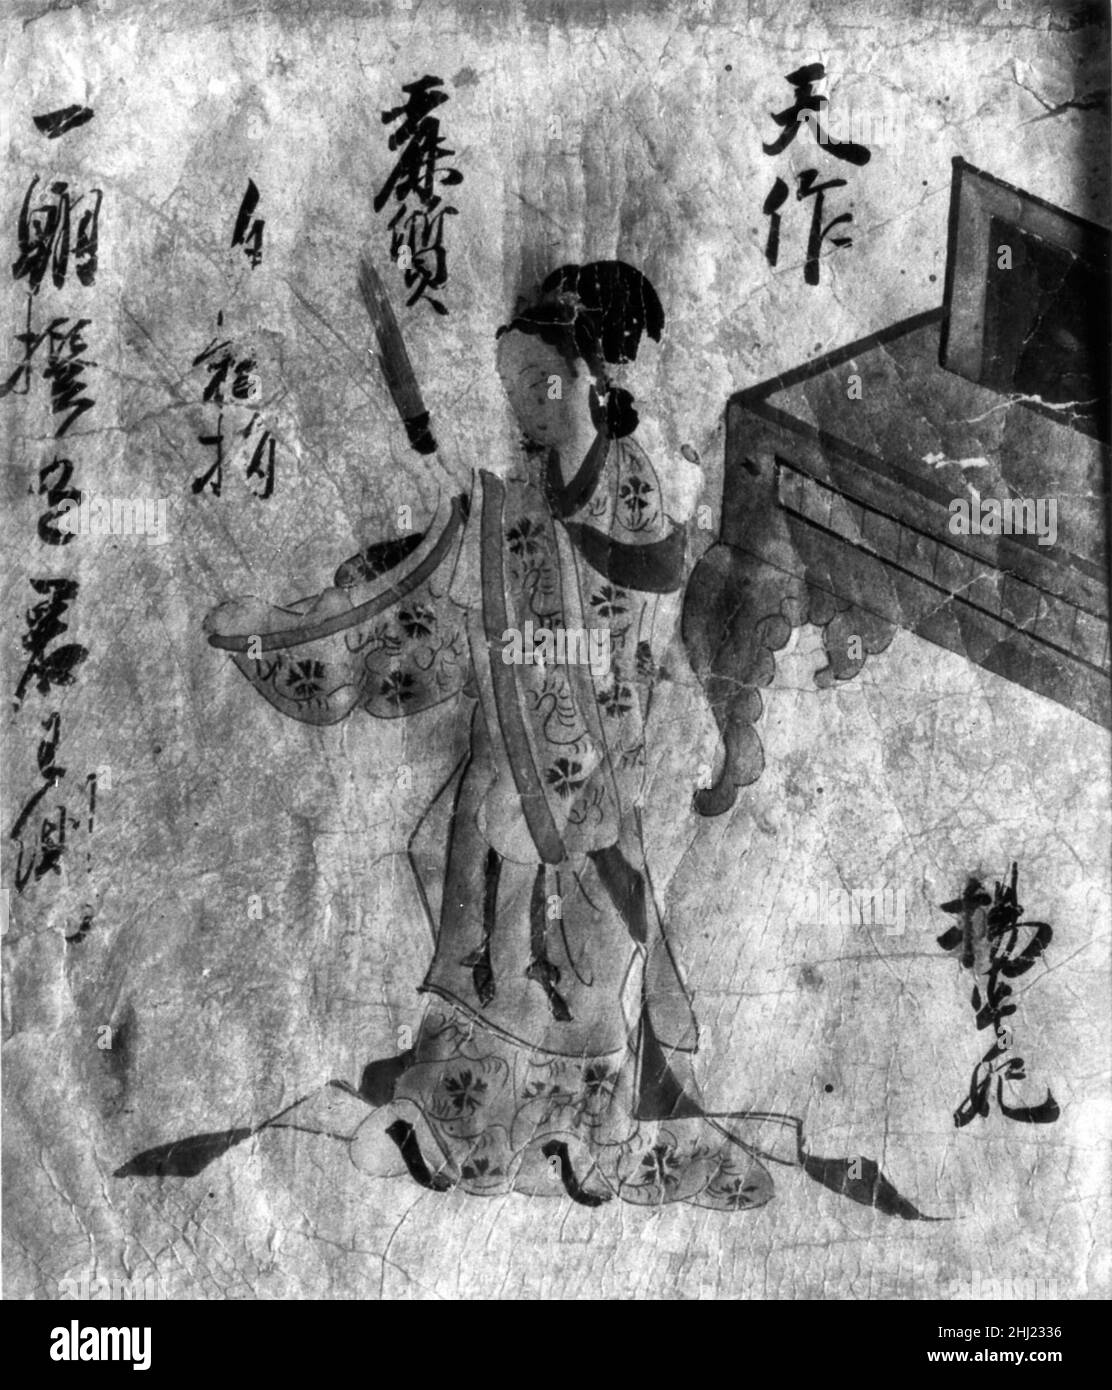 天作
麗質
自
一朝撰
君王側
楊貴妃
alamy
alamy
Image ID: 2HJ2336
www.alamy.com